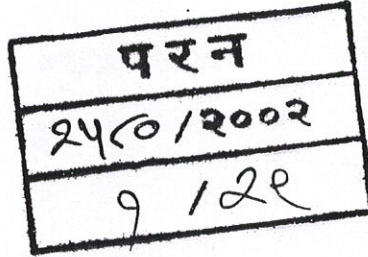 परन
२५८०/२००२
१ /२९